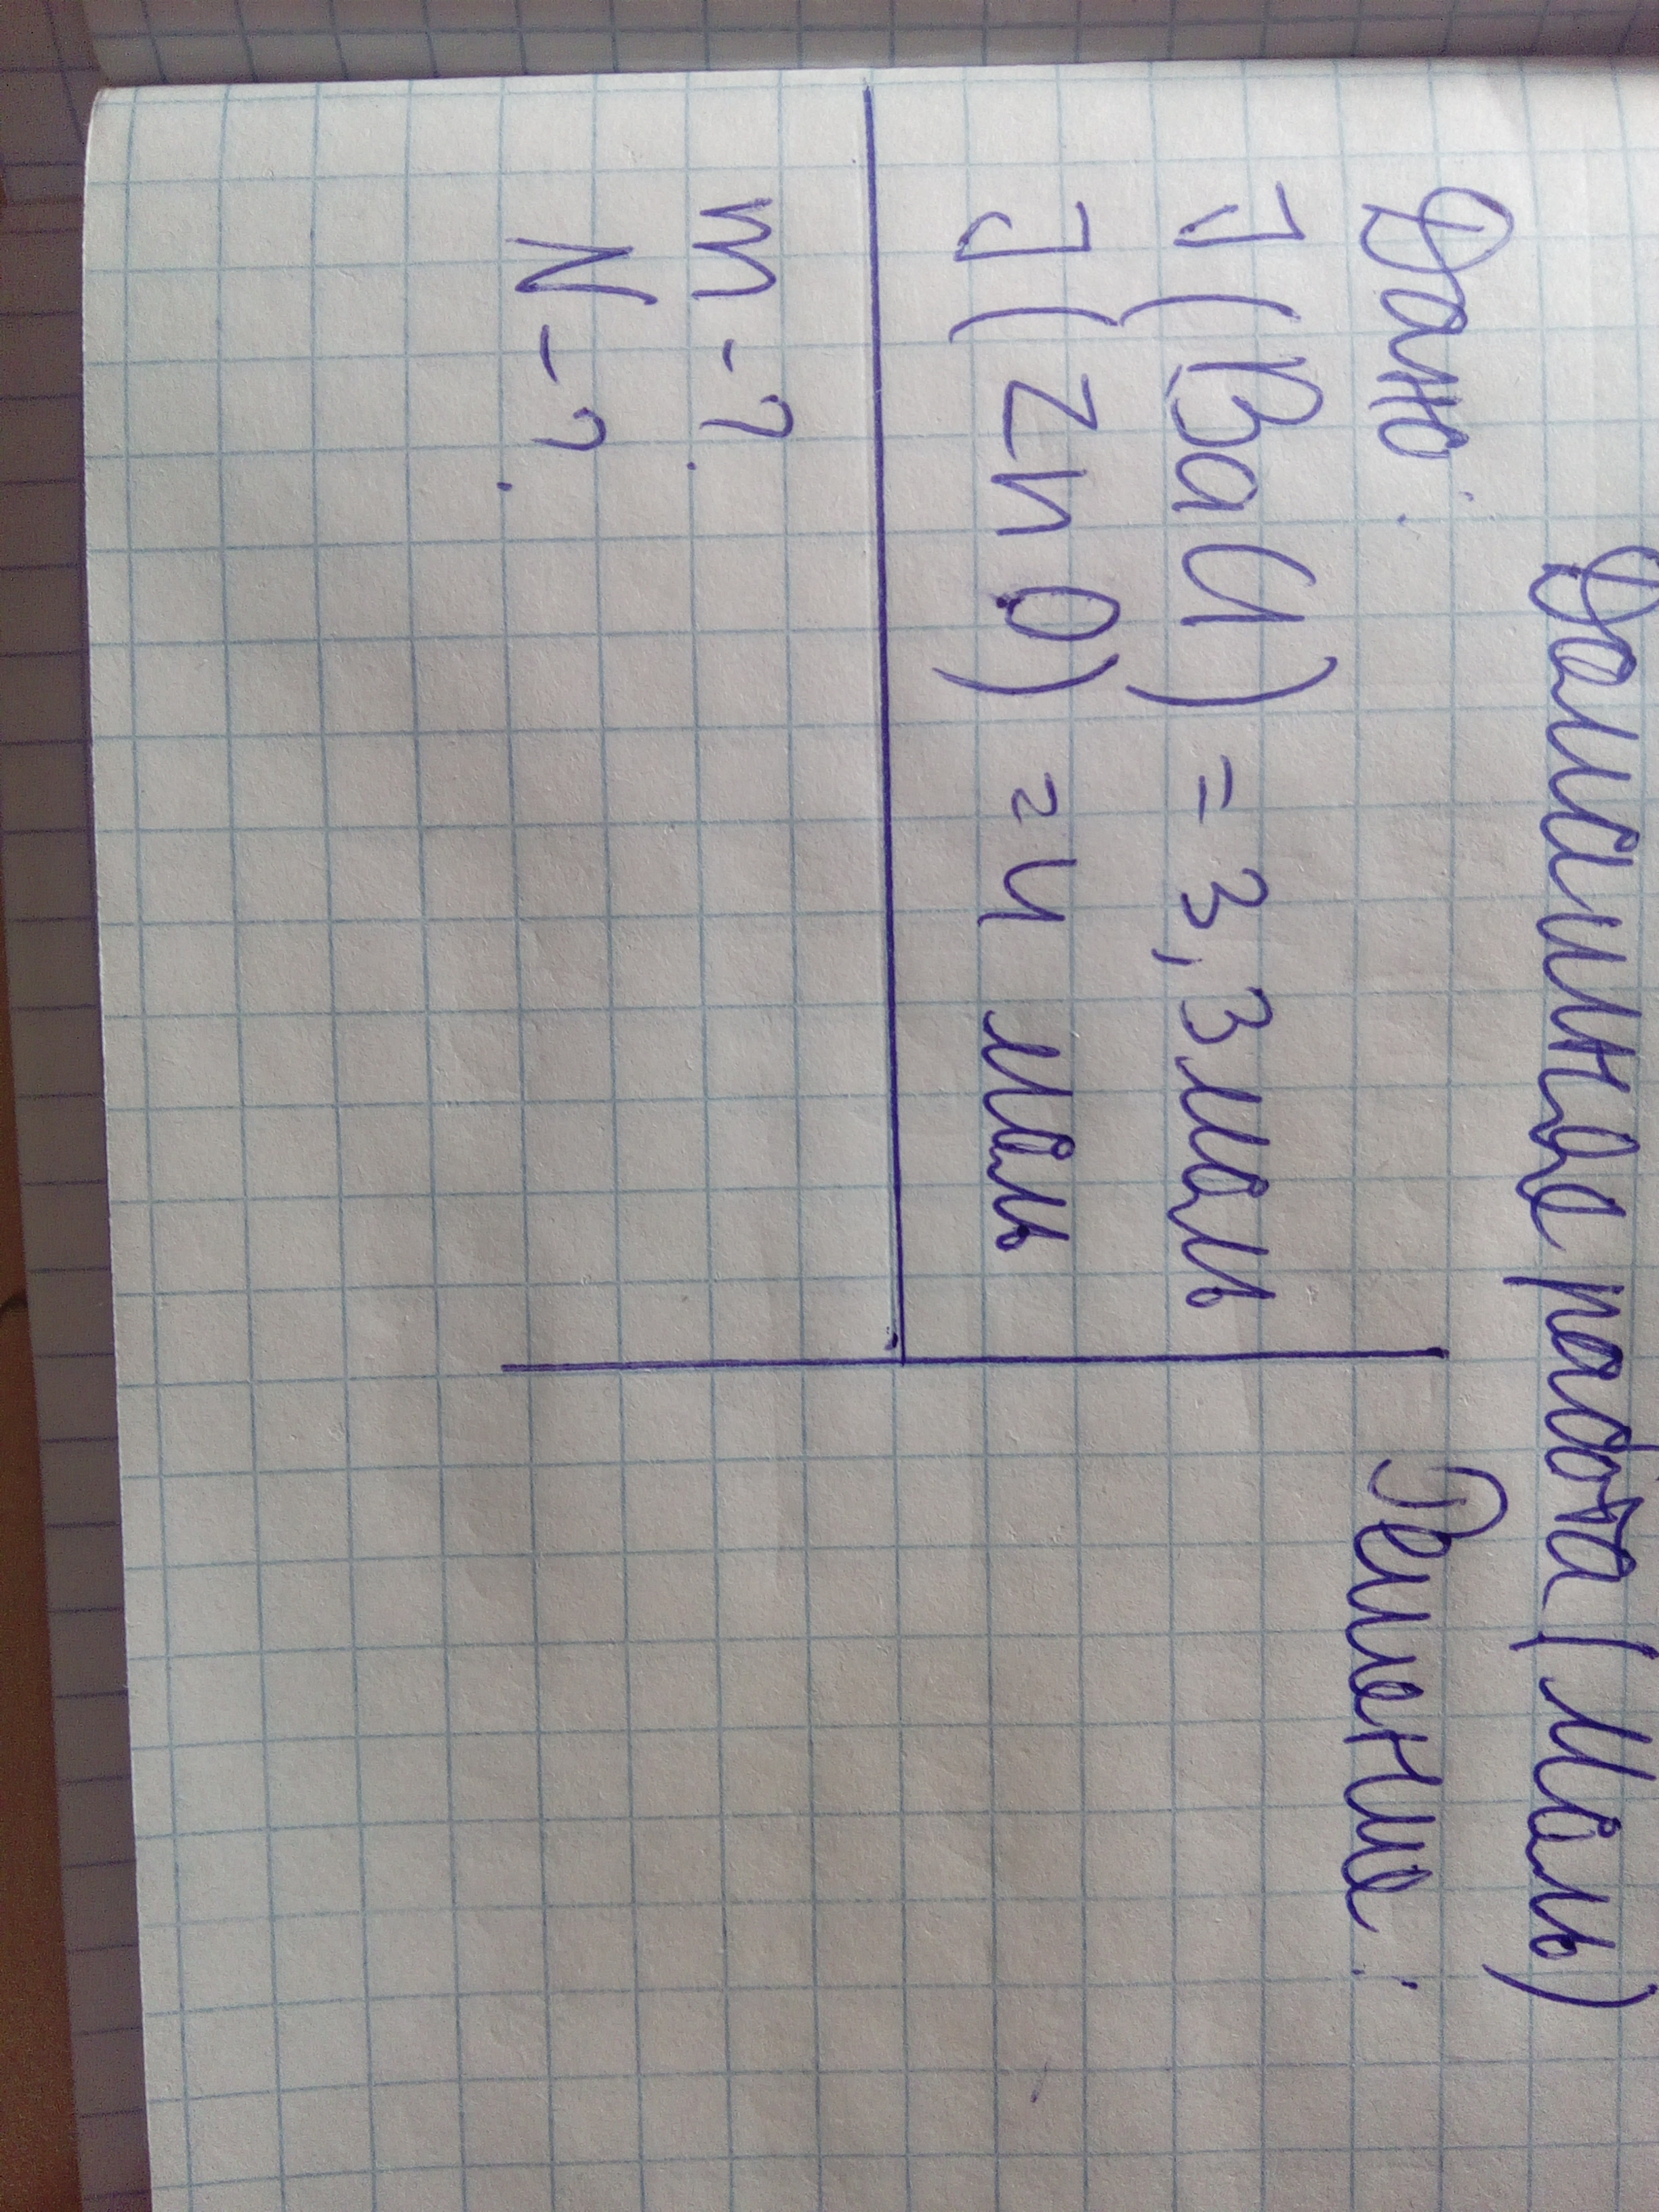 Домашняя работа (Моль)
Дано: Решение:
J (BaCl) = 3,3 моль
J (ZnO) = 4 моль
m - ?
N - ?